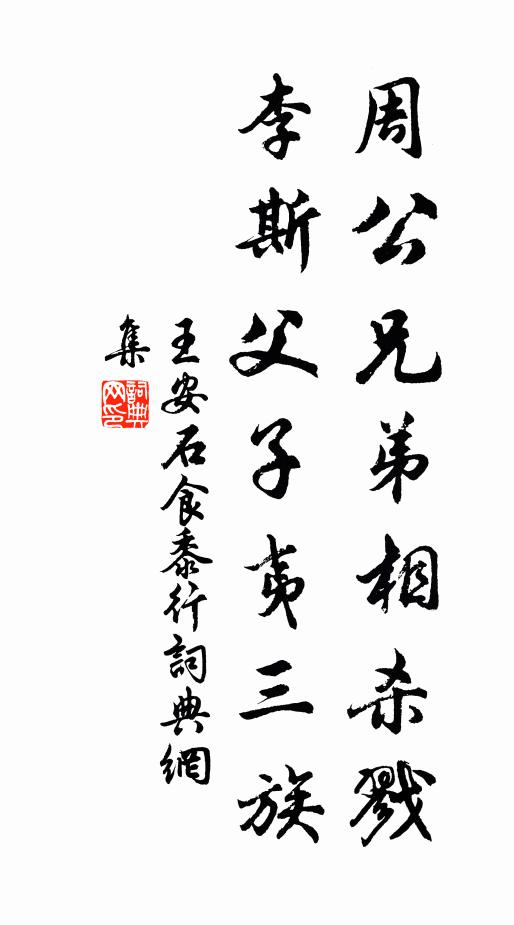 周公兄弟相杀戮
李斯父子夷三族
王安石食黍行詞典網
集
詞典
网印